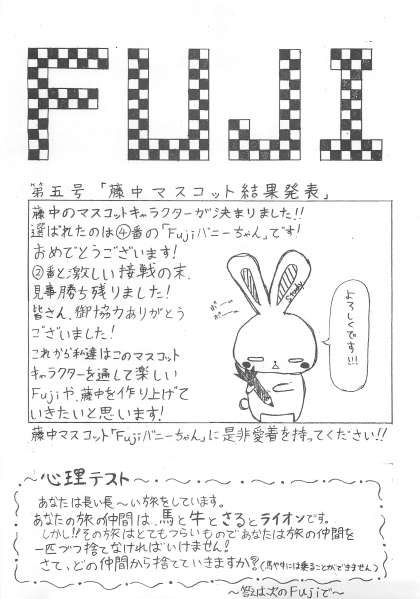 FUJI
第五号「藤中マスコット結果発表」
藤中のマスコットキャラクターが決まりました!!
選ばれたのは④番の「Fujiバニーちゃん」です!
おめでとうございます!
②番と激しい接戦の末、
見事勝ち残りました!
皆さん、御協力ありがとう
ございました!
これから私達はこのマスコット
キャラクターを通して楽しい
Fujiや、藤中を作り上げて
いきたいと思います!
Study
よろしくです!!!
藤中マスコット「Fujiバニーちゃん」に是非愛着を持ってください!!
～心理テスト～
あなたは長い長～い旅をしています。
あなたの旅の仲間は、馬と牛とさるとライオンです。
しかし!!その旅はとてもつらいものであなたは旅の仲間を
一匹づつ捨てなければいけません!
さて、どの仲間から捨てていきますか?(馬や牛には乗ることができません)
～答は次のFujiで～